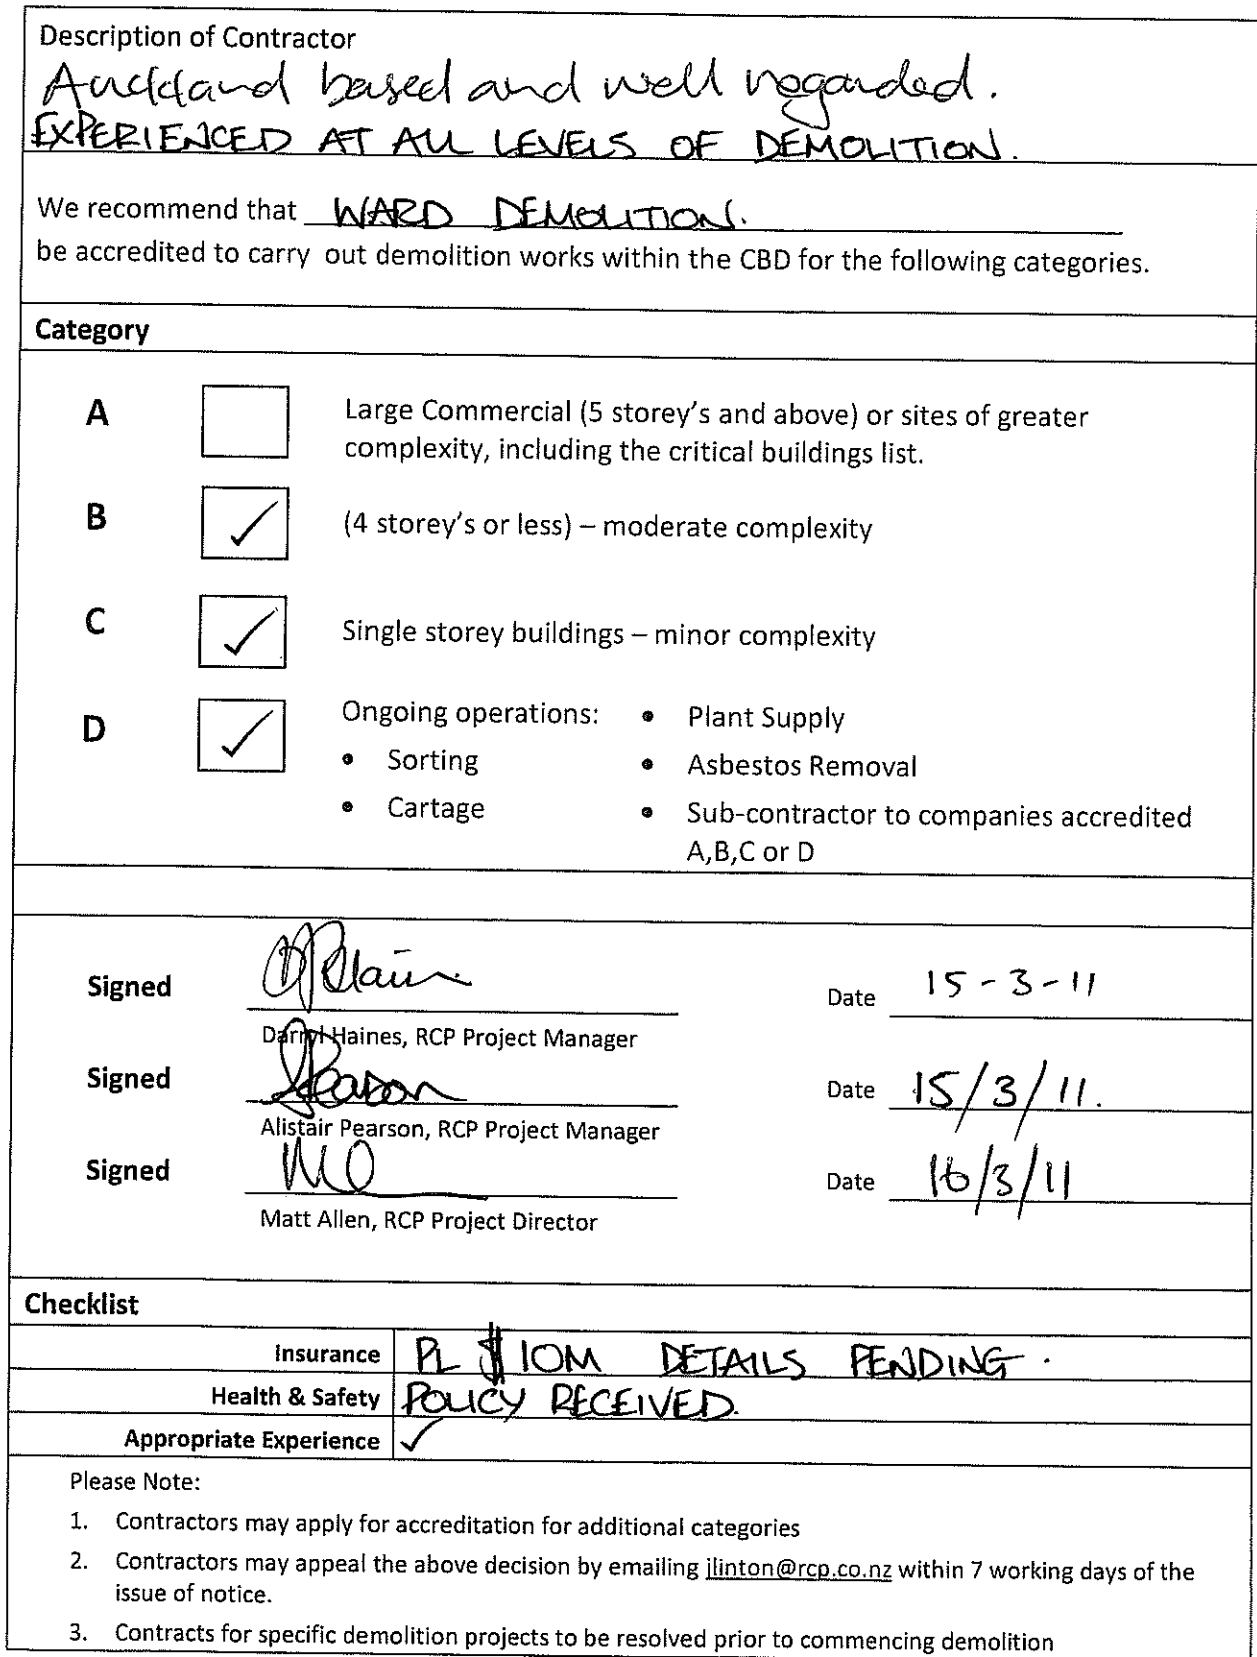 Description of Contractor
Auckland based and well regarded.
EXPERIENCED AT ALL LEVELS OF DEMOLITION.
We recommend that WARD DEMOLITION.
be accredited to carry out demolition works within the CBD for the following categories.
Category
A Large Commercial (5 storey's and above) or sites of greater
complexity, including the critical buildings list.
B ✓ (4 storey's or less) – moderate complexity
C ✓ Single storey buildings – minor complexity
D ✓ Ongoing operations:
• Sorting
• Cartage
• Plant Supply
• Asbestos Removal
• Sub-contractor to companies accredited
A,B,C or D
Signed Date 15-3-11
Darryl Haines, RCP Project Manager
Signed Pearson Date 15/3/11.
Alistair Pearson, RCP Project Manager
Signed Date 16/3/11
Matt Allen, RCP Project Director
Checklist
Insurance PL $10M DETAILS PENDING.
Health & Safety POLICY RECEIVED.
Appropriate Experience ✓
Please Note:
1. Contractors may apply for accreditation for additional categories
2. Contractors may appeal the above decision by emailing jlinton@rcp.co.nz within 7 working days of the
issue of notice.
3. Contracts for specific demolition projects to be resolved prior to commencing demolition